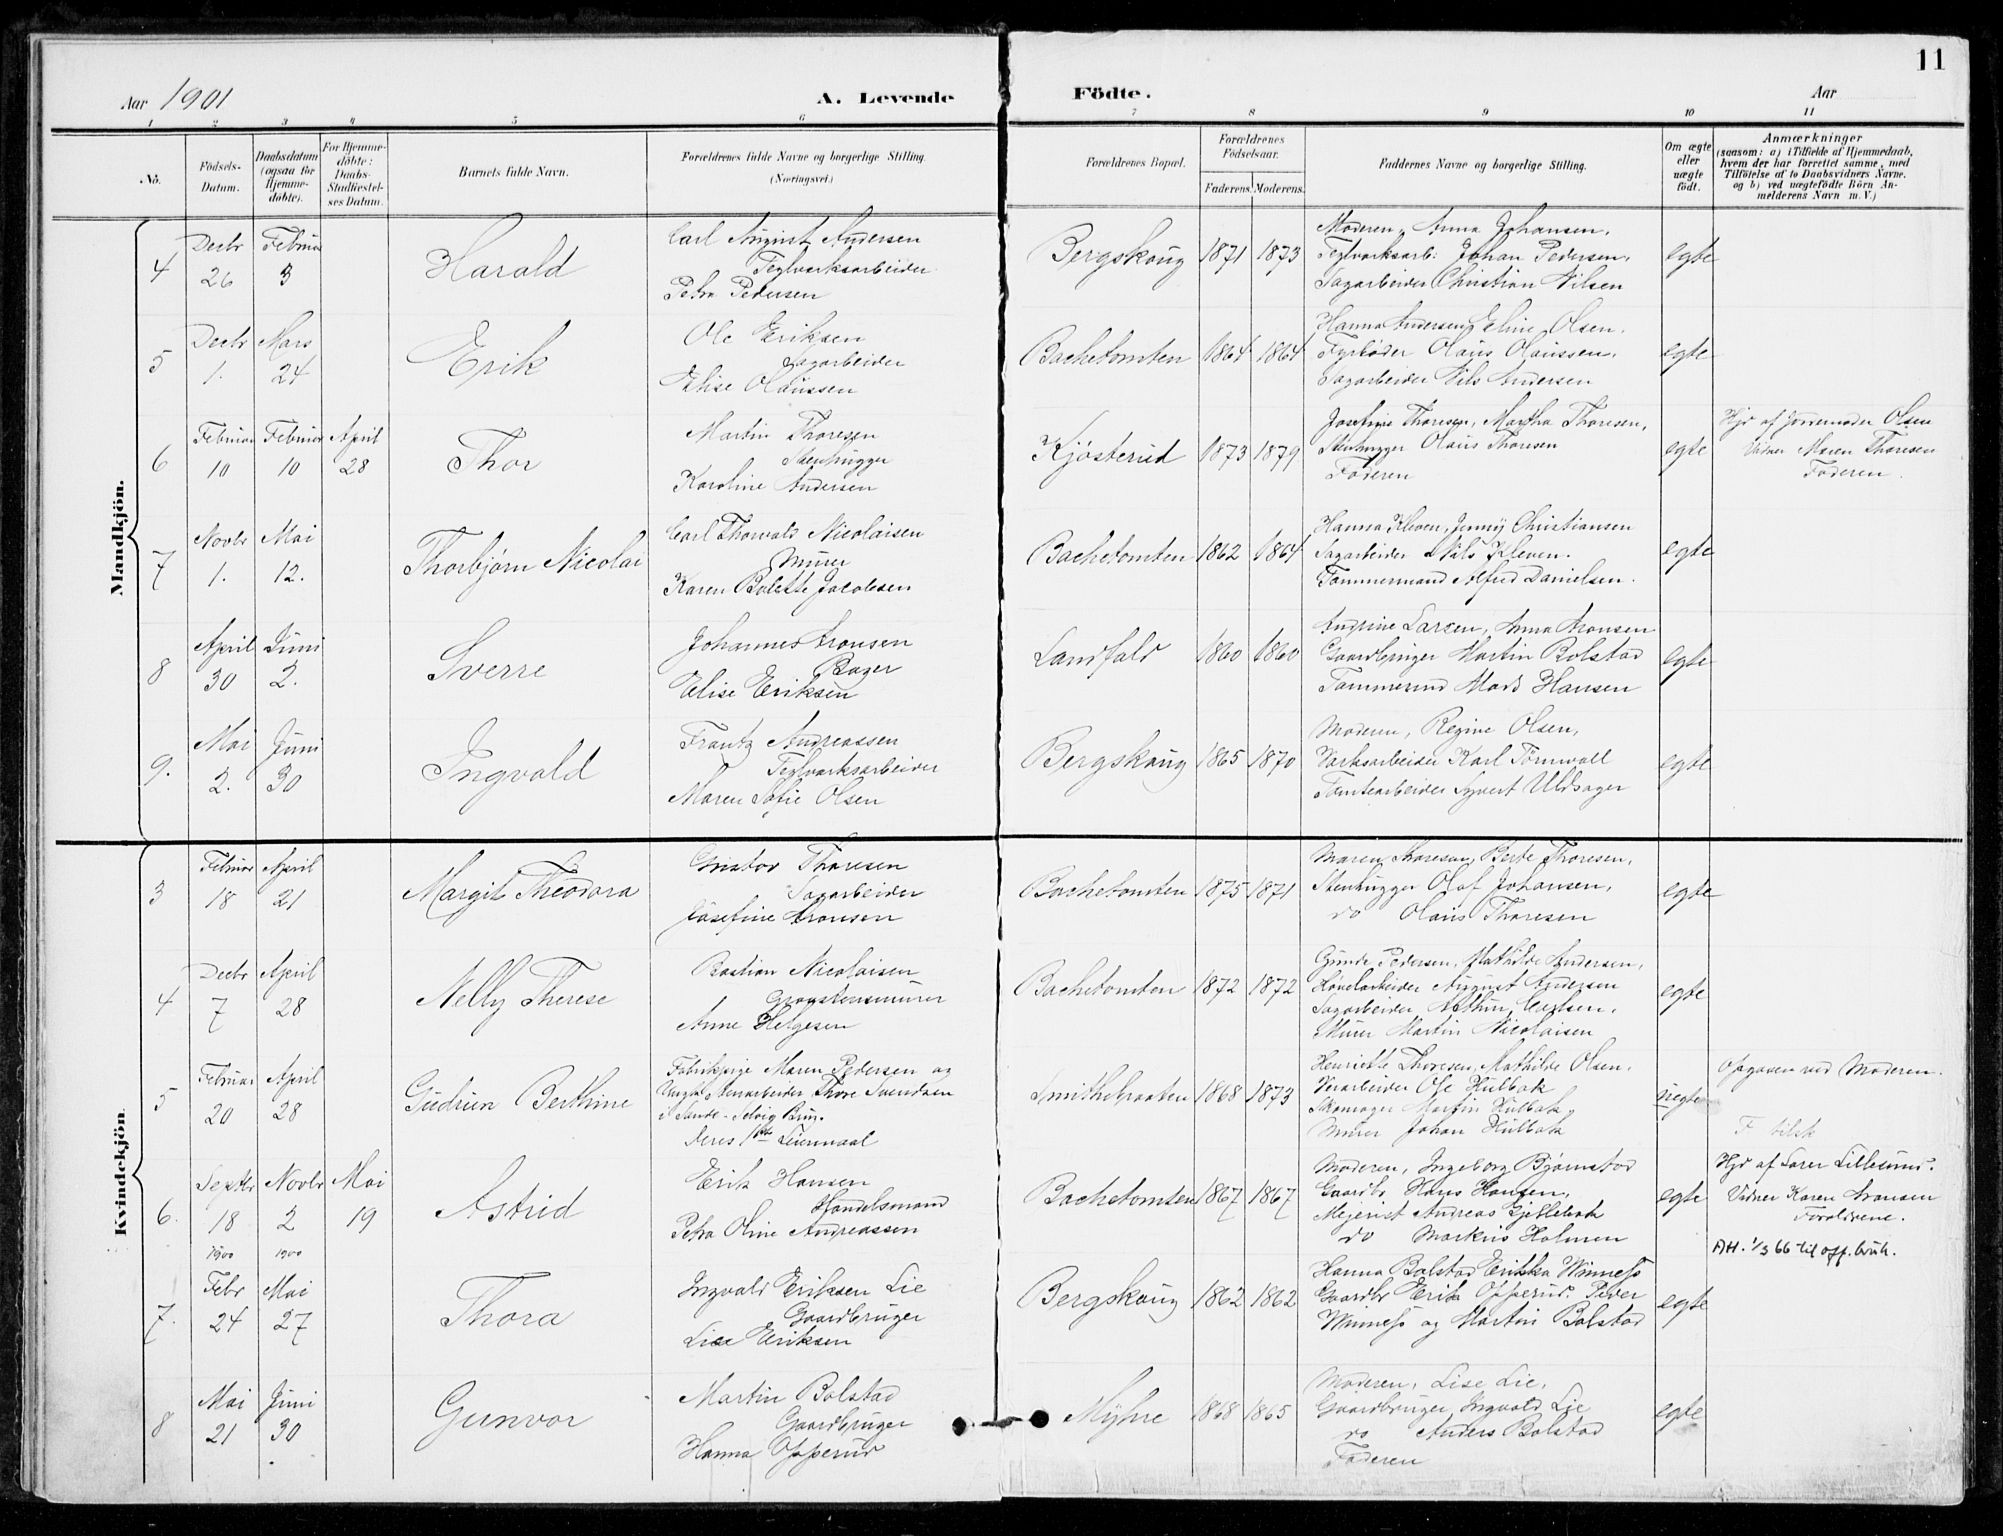 11
Aar 1901 A. Levende Födte. Aar
1 2 3 4 5 6 7 8 9 10 11
No.
Födsels-Datum.
Daabsdatum (ogsaa for Hjemme-döbte).
For Hjemme-döbte: Daabs-Stadfæstel-ses Datum.
Barnets fulde Navn.
Forældrenes fulde Navne og borgerlige Stilling.
(Næringsvei.)
Forældrenes Bopæl.
Forældrenes Födselsaar.
Faderens. Moderens.
Faddernes Navne og borgerlige Stilling.
Om ægte eller uægte födt.
Anmærkninger
(saasom: a) i Tilfælde af Hjemmedaab,
hvem der har forrettet samme, med
Tilföielse af to Daabsvidners Navne.
og b) ved uægtefödte Börn An-
melderens Navn m.V.)
Mandkjön.
4 Decbr 26 Februar 3 Harald
Carl August Andersen
Teglverksarbeider
Petra Pedersen
Bergskoug 1871 1873
Moderen, Anna Johansen,
Teglverksarb: Johan Pedersen,
Sagarbeider Christian Nilsen
egte
5 Decbr 1. Mars 24 Erik
Ole Eriksen
Sagarbeider
Elise Olaussen
Bachetomten 1864 1864
Hanna Andersen, Eline Olsen.
Fyrbøder Olaus Olaussen,
Sagarbeider Nils Andersen
egte
6 Februar 10 Februar 10 April 28 Thor
Martin Thoresen
Stenhugger
Karoline Andersen
Kjøsterud 1873 1879
Josefine Thoresen, Martha Thoresen,
Stenhugger Olaus Thoresen
Faderen
egte
Hjd af Jordemoder Olsen
Vidner Maren Thoresen
Faderen.
7 Novbr 1. Mai 12. Thorbjørn Nicolai
Carl Thorvald Nicolaisen
Murer
Karen Bolette Jacobsen
Bachetomten 1862 1864
Hanna Kleven, Jenny Christiansen
Sagarbeider Nils Kleven.
Tømmermand Alfred Danielsen.
egte
8 April 30 Juni 2. Sverre
Johannes Aronsen
Bager
Elise Eriksen
Landfald 1860 1860
Andrine Larsen, Anna Aronsen
Gaardbruger Martin Bolstad
Tømmermd Mads Hansen
egte
9. Mai 2. Juni 30 Ingvald
Frantz Andreassen
Teglverksarbeider
Maren Sofie Olsen
Bergskoug 1865 1870
Moderen, Regine Olsen,
Verksarbeider Karl Törnwall
Tomtearbeider Syvert Uldsager
egte
Kvindekjön.
3 Februar 18 April 21 Margit Theodora
Gustav Thoresen
Sagarbeider
Josefine Aronsen
Bachetomten 1875 1871
Maren Thoresen, Berte Thoresen,
Stenhugger Olaf Johansen,
do Olaus Thoresen
egte
4 Decbr 7 April 28 Nelly Therese
Bastian Nicolaisen
Graastensmurer
Anne Helgesen
Bachetomten 1872 1872
Gunda Pedersen, Mathilde Andersen,
Høvelarbeider August Andersen
Sagarbeider Arthur Carlsen,
Murer Martin Nicolaisen
egte
5 Februar 20 April 28 Gudrun Berthine
Fabrikpige Maren Pedersen og
Ungk. Stenarbeider Thore Svendsen
i Sande - Selvig Brug.
Deres 1ste Leiermaal
Smithebraaten 1868 1873
Henriette Thoresen, Mathilde Olsen,
Verarbeider Ole Hulbak
Skomager Martin Hulbak,
Murer Johan Hulbak
uegte
Opgaven ved Moderen.
F tilsk
6. Septbr 18 1900 Novbr 2 1900 Mai 19 Astrid
Erik Hansen
Handelsmand
Petra Oline Andreassen
Bachetomten 1867 1867
Moderen, Ingeborg Bjørnstad
Gaardbr. Hans Hansen,
Mejerist Andreas Gjellebak
do Markus Holmen
egte
Hjd af Lærer Lillesund.
Vidner Karen Aronsen
Forældrene.
AH. 1/3 66 til off. bruk.
7. Febr 24 Mai 27 Thora
Ingvald Eriksen Lie
Gaardbruger
Lise Eriksen
Bergskoug 1862 1862
Hanna Bolstad Erikka Winness
Gaardbr Erik Opperud. Peder
Winness og Martin Bolstad
egte
8 Mai 21 Juni 30 Gunvor
Martin Bolstad
Gaardbruger
Hanna Opperud
Myhre 1868 1865
Moderen, Lise Lie,
Gaardbruger, Ingvald Lie
do Anders Bolstad
Faderen
egte